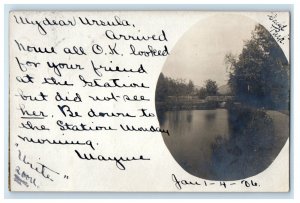 My dear Ursula,
Arrived
home all O.K. looked
for your friend
at the Station
but did not see
her. Be down to
the Station Monday
morning.
Wayne
"Write
soon"
Jan, 1-4-'06.